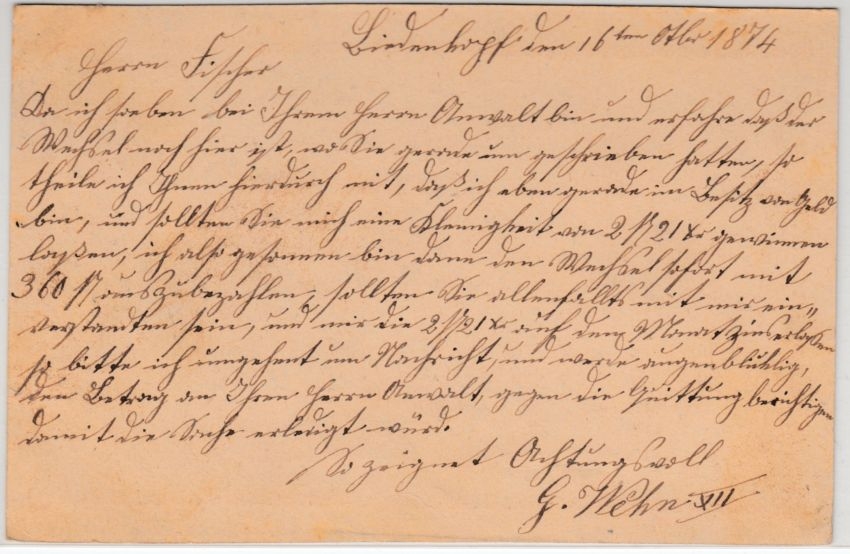 Biedenkopf den 16ten Otbr 1874
Herrn Fischer
Da ich soeben bei Ihrem Herrn Anwalt bin und erfahre daß der
Wechsel noch hier ist, wo Sie gerade um geschrieben hatten, so
theile ich Ihnen hierdurch mit, daß ich eben gerade im Besitz von Geld
bin, und sollten Sie mich eine Kleinigkeit von 2 fl 21 Xr gewinnen
laßen, ich also gesonnen bin dann den Wechsel sofort mit
360 fl auszubezahlen, sollten Sie allenfallts mit mir ein„
verstandten sein, und mir die 2 fl 21 Xr auf den Monat Zins erlaßen
so bitte ich umgehent um Nachricht, und werde augenbliklig,
den Betrag an Ihren Herrn Anwalt, gegen die Quittung berichtigen
damit die Sache erledigt würd.
So zeignet Achtungsvoll
G. Wehn XII